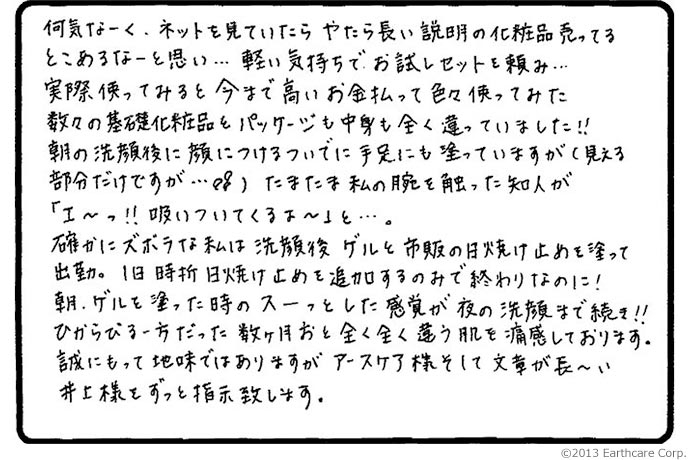 何気なーく、ネットを見ていたら やたら長い説明の化粧品売ってる
とこあるなーと思い… 軽い気持ちでお試しセットを頼み…
実際使ってみると今まで高いお金払って色々使ってみた
数々の基礎化粧品とパッケージも中身も全く違っていました!!
朝の洗顔後に顔につけるついでに手足にも塗っていますが(見える
部分だけですが…) たまたま私の腕を触った知人が
「エ〜っ!! 吸いついてくるよ〜」と…。
確かにズボラな私は洗顔後 ゲルと市販の日焼け止めを塗って
出勤。1日時折日焼け止めを追加するのみで終わりなのに!
朝、ゲルを塗った時のスーっとした感覚が夜の洗顔まで続き!!
ひからびる一方だった数ヶ月前と全く全く違う肌を痛感しております。
誠にもって地味ではありますがアースケア様そして文章が長〜い
井上様をずっと指示致します。
©2013 Earthcare Corp.